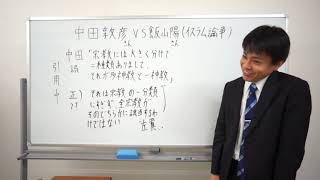 中田敦彦 VS 飯山陽(イスラム論争)
さん さん
中田 "宗教には大きく分けて
引 二種類ありまして、
用 それが多神教と一神教"
正 それは宗教の一分類
にすぎず、全宗教が
そのどちらかに該当するわ
けではない